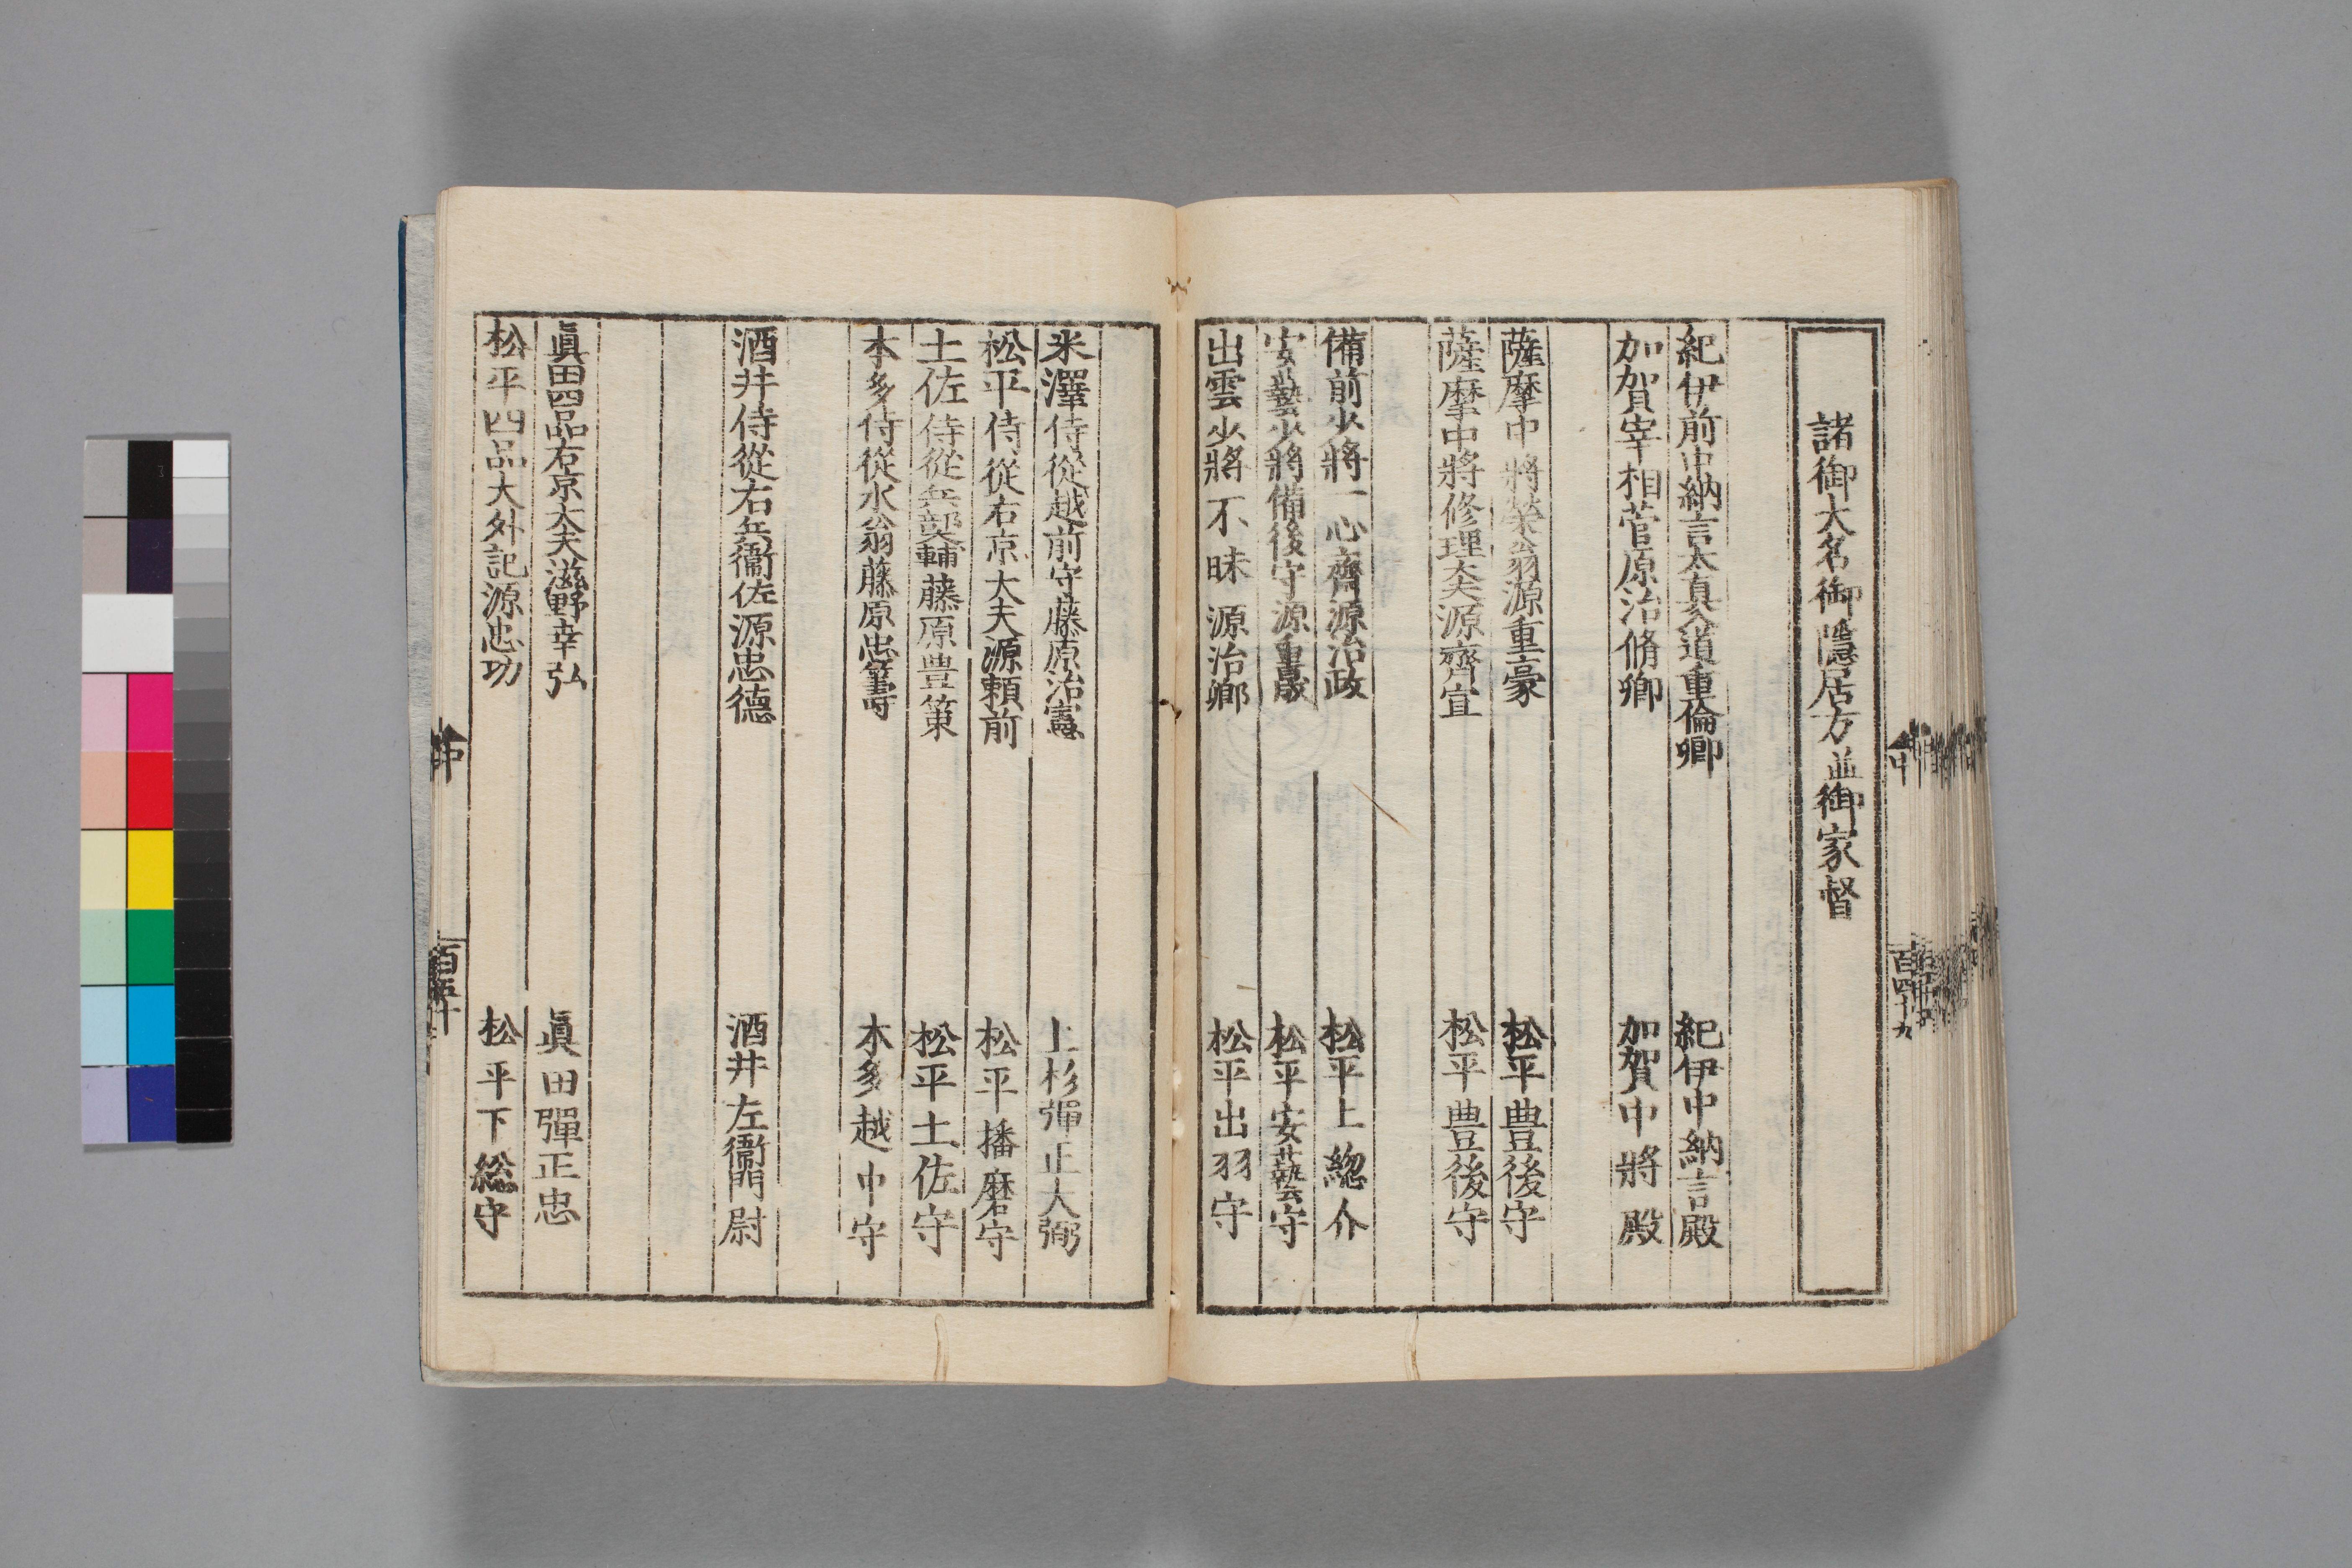 諸御大名御隱居方並御家督
紀伊前中納言太真入道重倫卿 紀伊中納言殿
加賀宰相菅原治脩卿 加賀中將殿
薩摩中將榮翁源重豪 松平豊後守
薩摩中將修理大夫源齊宣 松平豊後守
備前少將一心齊源治政 松平上總介
安藝少將備後守源重晟 松平安藝守
出雲少將不昧源治郷 松平出羽守
百四十九
米澤侍從越前守藤原治憲 上杉彈正大弼
松平侍從右京大夫源頼前 松平播磨守
土佐侍從兵部大輔藤原豊策 松平土佐守
本多侍從水翁藤原忠籌 本多越中守
酒井侍從右兵衞佐源忠德 酒井左衞門尉
眞田四品右京大夫滋野幸弘 眞田彈正忠
松平四品大外記源忠功 松平下総守
中
百五十